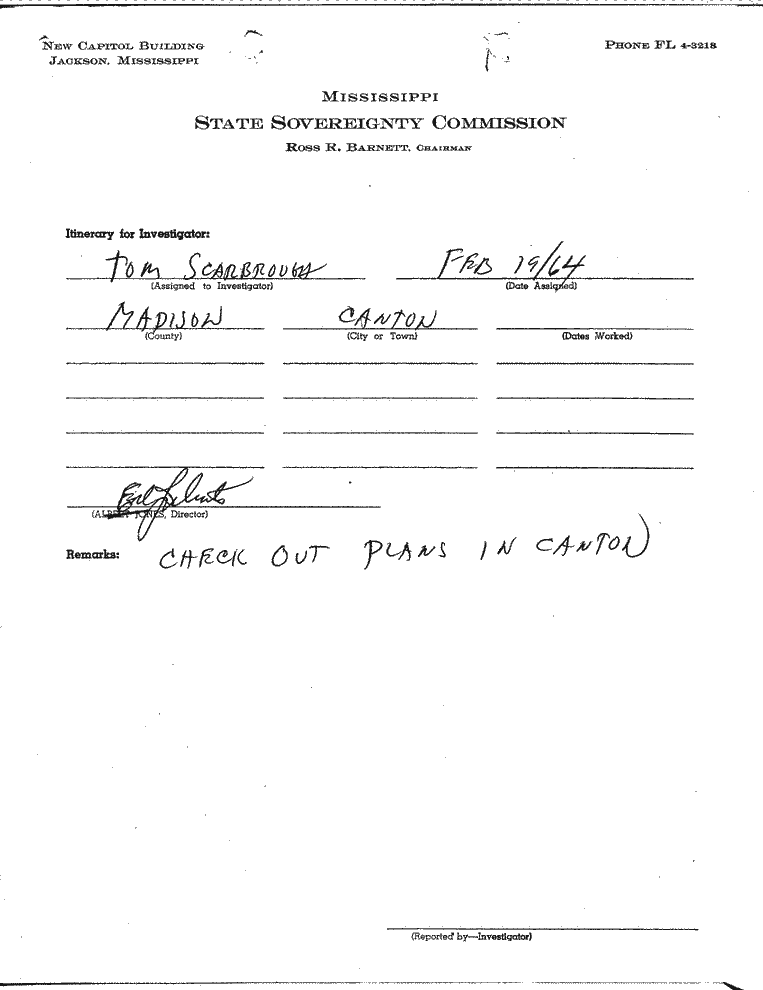 NEW CAPITOL BUILDING
JACKSON, MISSISSIPPI
PHONE FL 4-3218
MISSISSIPPI
STATE SOVEREIGNTY COMMISSION
ROSS R. BARNETT, CHAIRMAN
Itinerary for Investigator:
TOM SCARBROUGH FEB 19/64
(Assigned to Investigator) (Date Assigned)
MADISON CANTON
(County) (City or Town) (Dates Worked)
(ALBERT JONES, Director)
Remarks: CHECK OUT PLANS IN CANTON
(Reported by—Investigator)